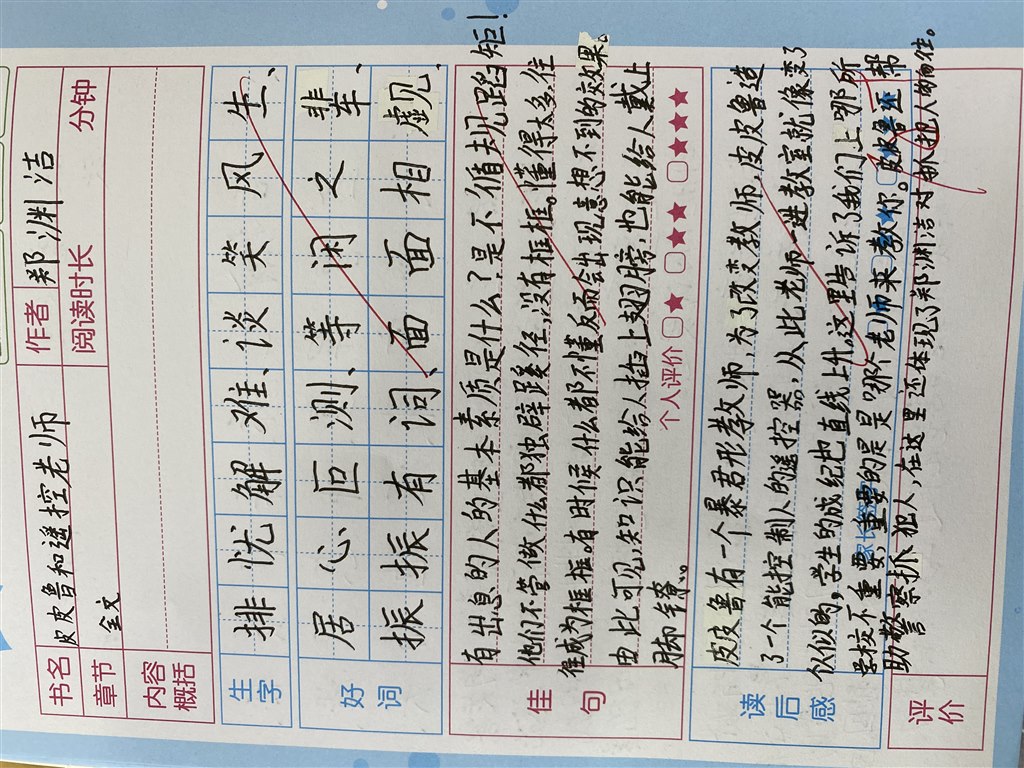 书名 皮皮鲁和遥控老师 作者 郑渊洁
章节 全文 阅读时长 分钟
内容概括
生字 排忧解难、谈笑风生、
好词 居心叵测、等闲之辈、
振振有词、面面相觑.
佳句 有出息的人的基本素质是什么?是不循规蹈矩!
他们不管做什么都独辟蹊径,没有框框。懂得太多,往
往成为框框。有时候什么都不懂反而会出现意想不到的效果。
由此可见,知识能给人插上翅膀,也能给人戴上
脚镣…
个人评价 ★ ★★ ★★★★
读后感 皮皮鲁有一个暴君形教师,为了改变教师,皮皮鲁造
了一个能控制人的遥控器,从此老师一进教室就像变了
似似的,学生的成纪把直线上升。这里告诉了我们上哪所
学校不重要,重要的是是哪个老师来教你。皮皮鲁还帮
助警察抓犯人,在这里还体现了郑渊洁对抓把人的响往。
评价